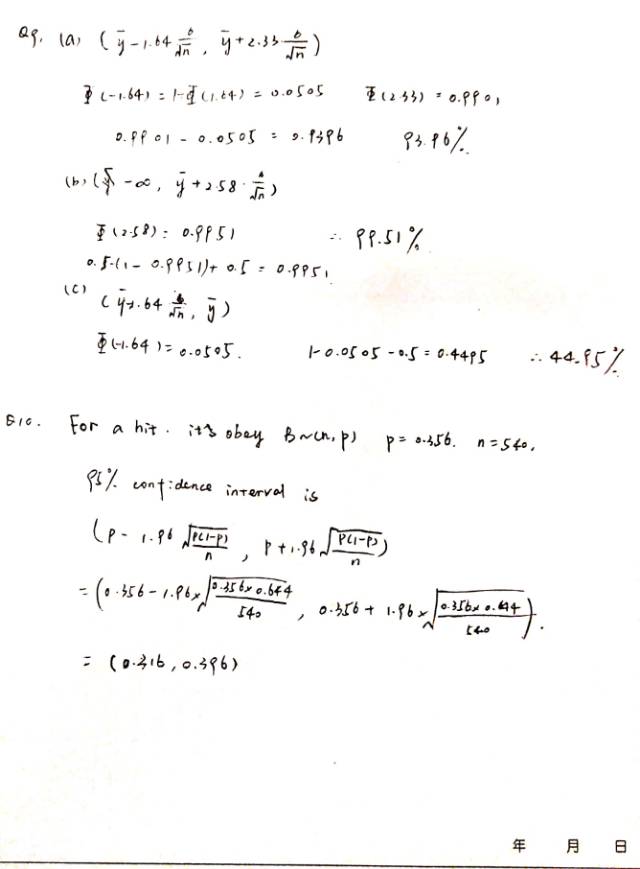 Q9. (a) (ȳ-1.64 σ/√n, ȳ+2.33 σ/√n)
Φ(-1.64) = 1-Φ(1.64) = 0.0505 Φ(2.33) = 0.9901
0.9901 - 0.0505 = 0.9396 93.96%
(b) ( -∞, ȳ+2.58·σ/√n)
Φ(2.58) = 0.9951 ∴ 99.51%
0.5·(1- 0.9951)+ 0.5 = 0.9951
(c)
(ȳ-1.64 σ/√n, ȳ)
Φ(-1.64) = 0.0505. 1-0.0505-0.5 = 0.4495 ∴ 44.95%
Q10. For a hit. it's obey B~(n,p) p = 0.356. n=540.
95% confidence interval is
(p - 1.96 √(p(1-p))/n, p+1.96 √(p(1-p)/n))
= (0.356 - 1.96×√(0.356×0.644/540), 0.356 + 1.96×√(0.356×0.644/540)).
= (0.316, 0.396)
年 月 日